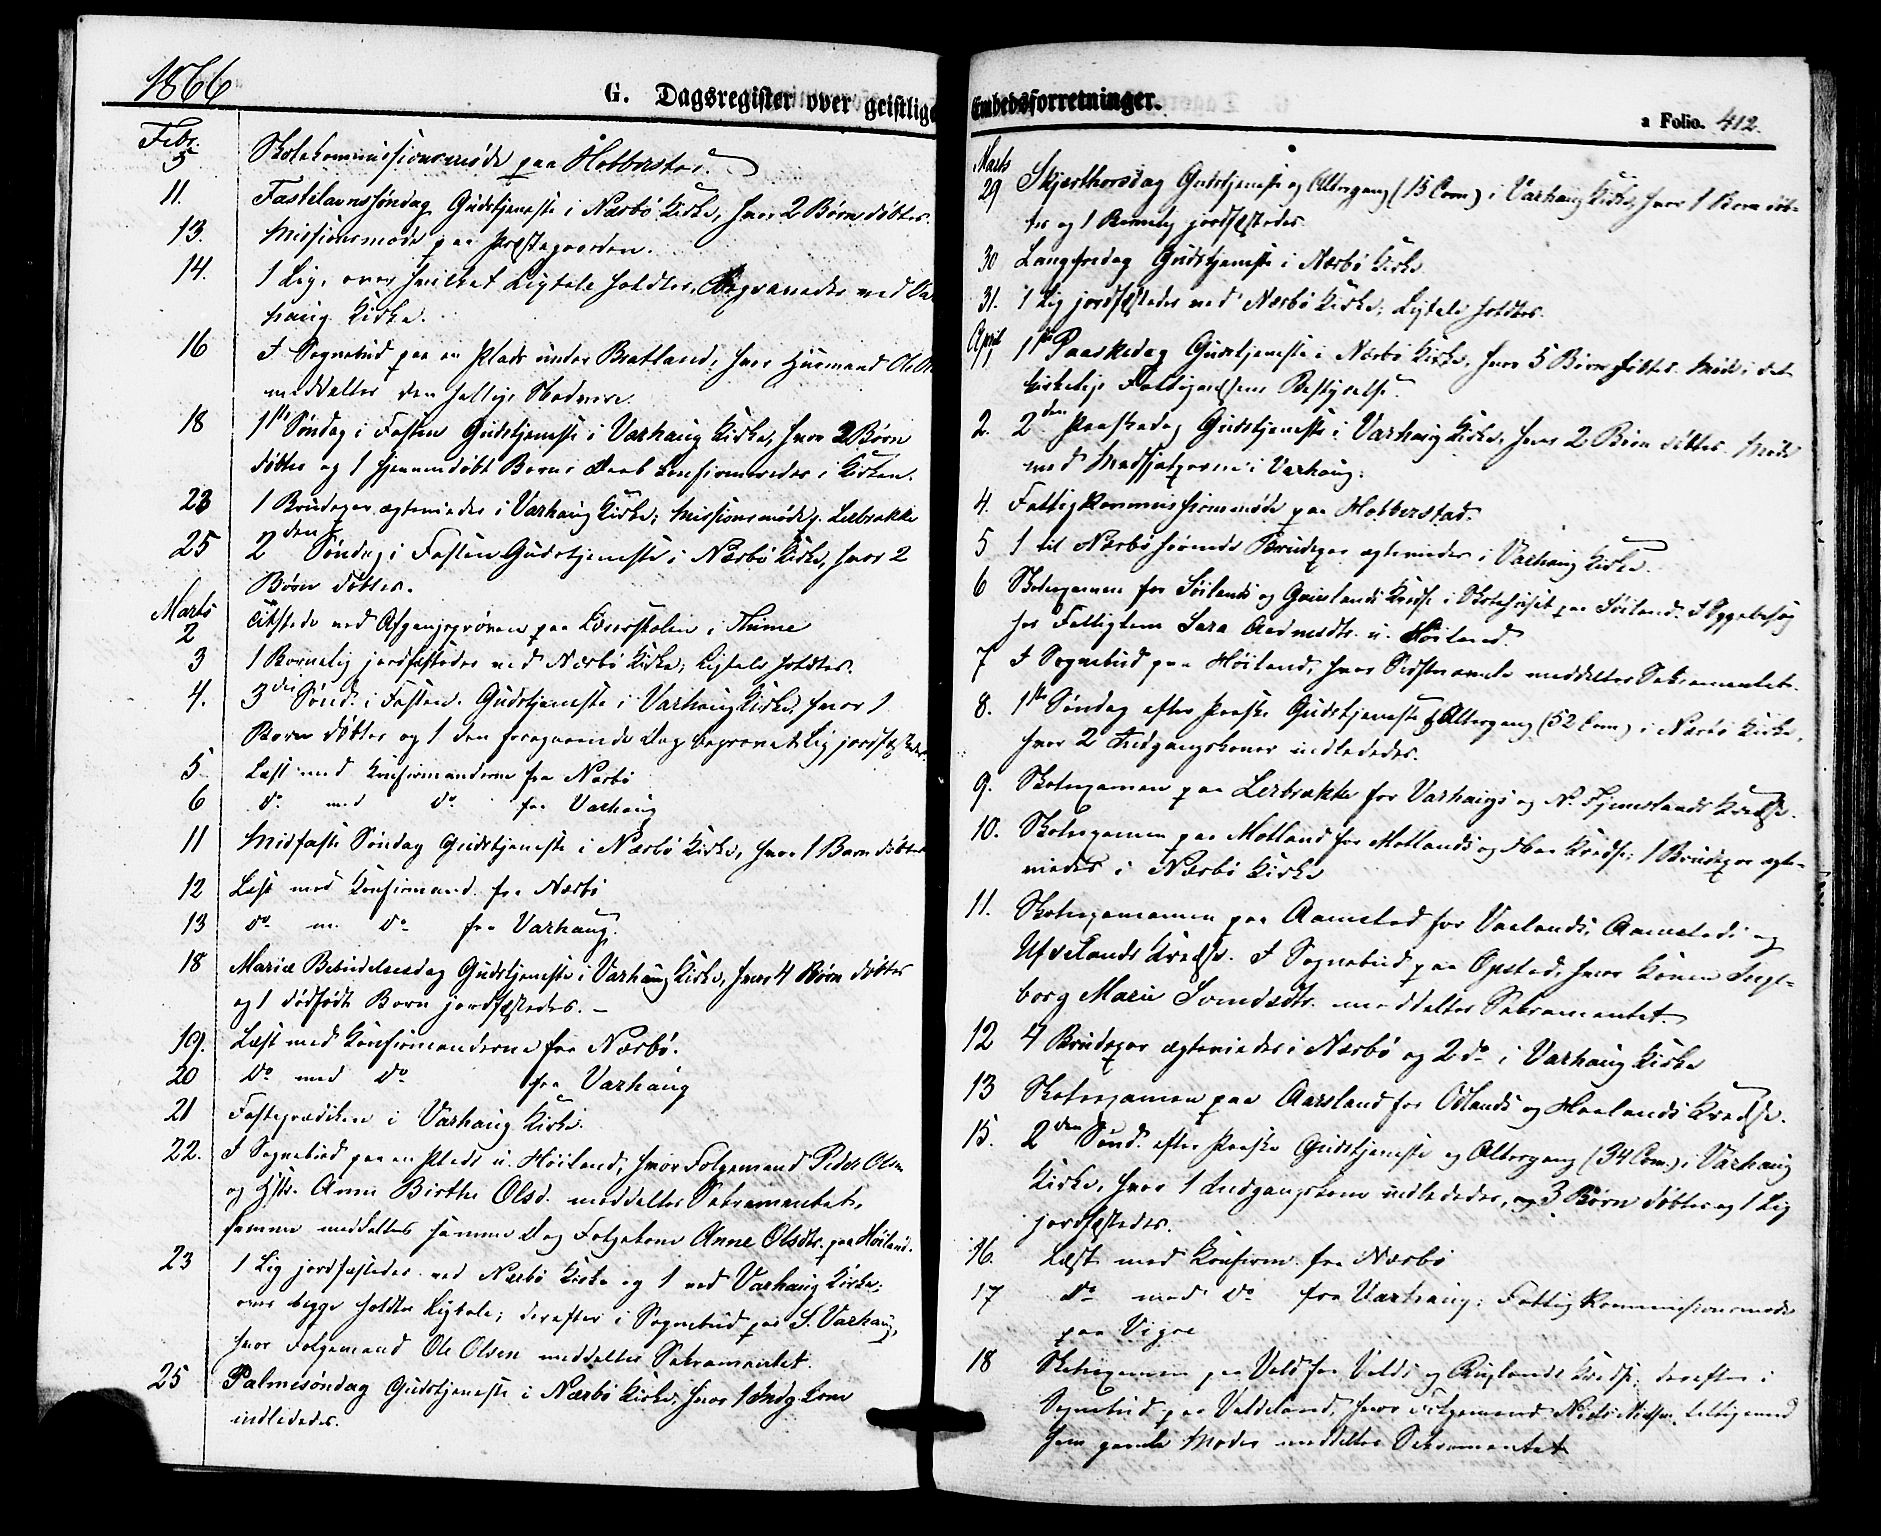 1866
G. Dagsregister over geistlige
Febr.
5 Skolekommissionsmøde paa Hobberstad.
11. Fastelavnssøndag Gudstjeneste i Nærbø Kirke, hvor 2 Børn døbtes.
13. Missionsmøde paa Præstegaarden.
14. 1 Lig, over hvilket Ligtale holdtes, begravedes ved Va
haug Kirke.
16 I Sognebud paa en Plads under Bratland, hvor Huusmand Ole
meddeltes den hellige Nadvere.
18 1ste Søndag i Fasten Gudstjeneste i Varhaug Kirke, hvor 2 Børn
døbtes og 1 hjemmedøbt Barns Daab konfirmeredes i Kirken.
23 1 Brudepar ægteviedes i Varhaug Kirke; Missionsmøde p. Lerbrække
25 2den Søndag i Fasten Gudstjeneste i Nærbø Kirke, hvor 2
Børn døbtes.
Marts
2 tilstede ved Afgangsprøven paa Lærerskolen i Thime
3 1 Barnelig jordfæstedes ved Nærbø Kirke; Ligtale holdtes.
4. 3die Sønd. i Fasten. Gudstjeneste i Varhaug Kirke, hvor 1
Barn døbtes og 1 den foregaaende Dag begravet Lig jordfæstedes.
5 Læst med Konfirmanderne fra Nærbø
6 do med do fra Varhaug
11 Midfaste Søndag Gudstjeneste i Nærbø Kirke, hvor 1 Barn døbtes
12 Læst med Konfirmand. fra Nærbø
13 do m. do fra Varhaug.
18 Mariæ Bebudelsesdag Gudstjeneste i Varhaug Kirke, hvor 4 Børn døbtes
og 1 dødfødt Barn jordfæstedes. –
19. Læst med Konfirmanderne fra Nærbø.
20 do med do fra Varhaug
21 Fasteprædiken i Varhaug Kirke.
22. I Sognebud paa en Plads u. Høiland, hvor Folgemand Peder Olsen
og Hstr. Anne Birthe Olsd. meddeltes Sakramentet,
samme meddeltes samme Dag Folgekone Anne Olsdtr. paa Høiland.
23 1 Lig jordfæstedes ved Nærbø Kirke og 1 ved Varhaug Kirke;
over begge holdtes Ligtale; derefter i Sognebud paa S. Varhaug,
hvor Folgemand Ole Olsen meddeltes Sakramentet.
25 Palmesøndag Gudstjeneste i Nærbø Kirke, hvor 1 Indg. Kone
indlededes.
Embedsforretninger.
a Folio. 412.
Marts
29 Skjærthorsdag Gudstjeneste og Altergang (15 Com.) i Varhaug Kirke, hvor 1 Barn døb-
tes og 1 Barnelig jordfæstedes.
30 Langfredag Gudstjeneste i Nærbø Kirke.
31. 1 Lig jordfæstedes ved Nærbø Kirke; Ligtale holdtes.
April
1 1ste Paaskedag Gudstjeneste i Nærbø Kirke, hvor 5 Børn døbtes. Møde i det
kirkelige Fattigvæsens Bestyrelse.
2. 2den Paaskedag Gudstjeneste i Varhaug Kirke, hvor 2 Børn døbtes. Møde
med Medhjælperne i Varhaug.
4. Fattigkommissionsmøde paa Hobberstad.
5 1 til Nærbø hørende Brudepar ægteviedes i Varhaug Kirke.
6 Skoleexamen for Høilands og Grødlands Kreds i Skolehuset paa Høiland. Sygebesøg
hos Fattiglem Sara Aadnesdtr. u. Høiland.
7 I Sognebud paa Høiland, hvor Sidstnævnte meddeltes Sakramentet.
8. 1ste Søndag efter Paaske Gudstjeneste & Altergang (52 Com.) i Nærbø Kirke,
hvor 2 Indgangskoner indlededes.
9. Skoleexamen paa Lerbrække for Varhaugs og N. Fjemestands Kredse.
10. Skoleexamen paa Motland for Motlands og Obre Kredse; 1 Brudepar ægte-
viedes i Nærbø Kirke
11. Skoleexamen paa Aamestad for Voulands, Aamestads og
Ufvelands Kredse. I Sognebud paa Opstad, hvor Konen Inge-
borg Marie Svendsdtr. meddeltes Sakramentet.
12 4 Brudepar ægteviedes i Nærbø og 2 do i Varhaug Kirke
13 Skoleexamen paa Aarsland for Ødlands og Haalands Kredse.
15. 2den Sønd. efter Paaske Gudstjeneste og Altergang (34 Com.) i Varhaug
Kirke, hvor 1 Indgangskone indlededes, og 3 Børn døbtes og 1 Lig
jordfæstedes.
16. Læst med Konfirm. fra Nærbø
17 do med do fra Varhaug; Fattigkommissionsmøde
paa Vigre
18 Skoleexamen paa Vold for Volds og Ruglands Kredse; derefter i
Sognebud paa Voldeland, hvor Folgemand Niels Nielsen tilligemed
hans gamle Moder meddeltes Sakramentet